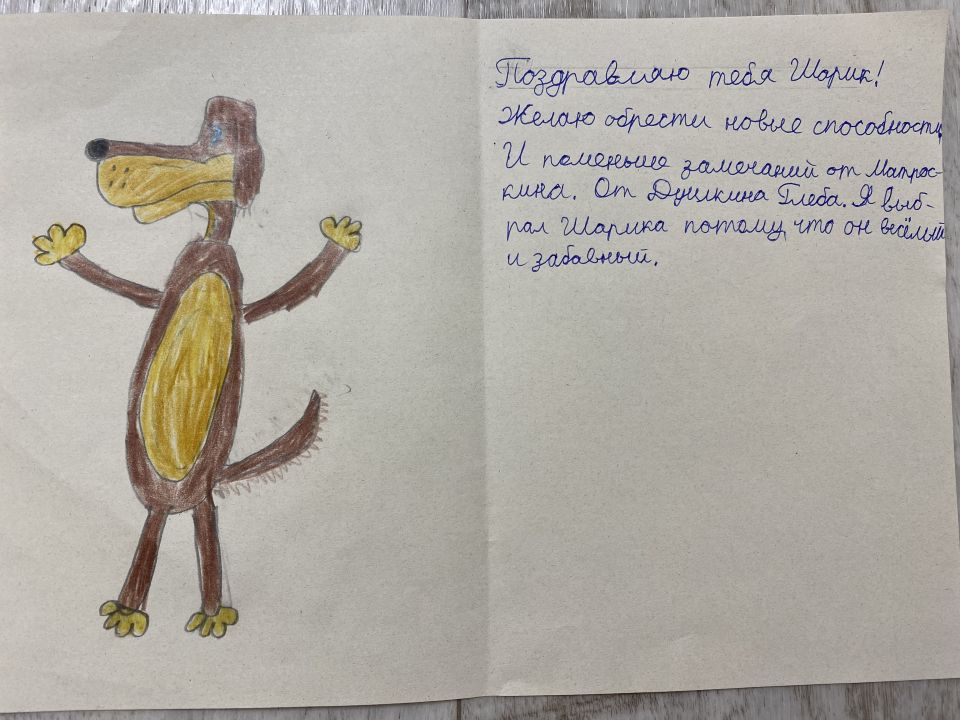 Поздравляю тебя Шарик!
Желаю обрести новые способности,
И поменьше замечаний от Матрос-
кина. От Душкина Глеба. Я выб-
рал Шарика потому, что он весёлый
и забавный.